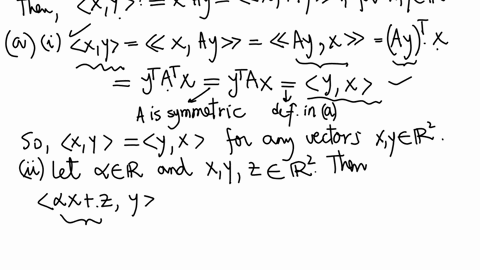 Then, <x,y> := x
(a) (i) <x,y> = <<x, Ay>> = <<Ay, x>> = (Ay)ᵀ. x
= yᵀAᵀx = yᵀAx = <y, x> ✓
A is symmetric def. in (a)
So, <x,y> = <y,x> for any vectors x,y∈ℝ².
(ii) Let α∈ℝ and x,y,z∈ℝ². Then
<αx+z, y>